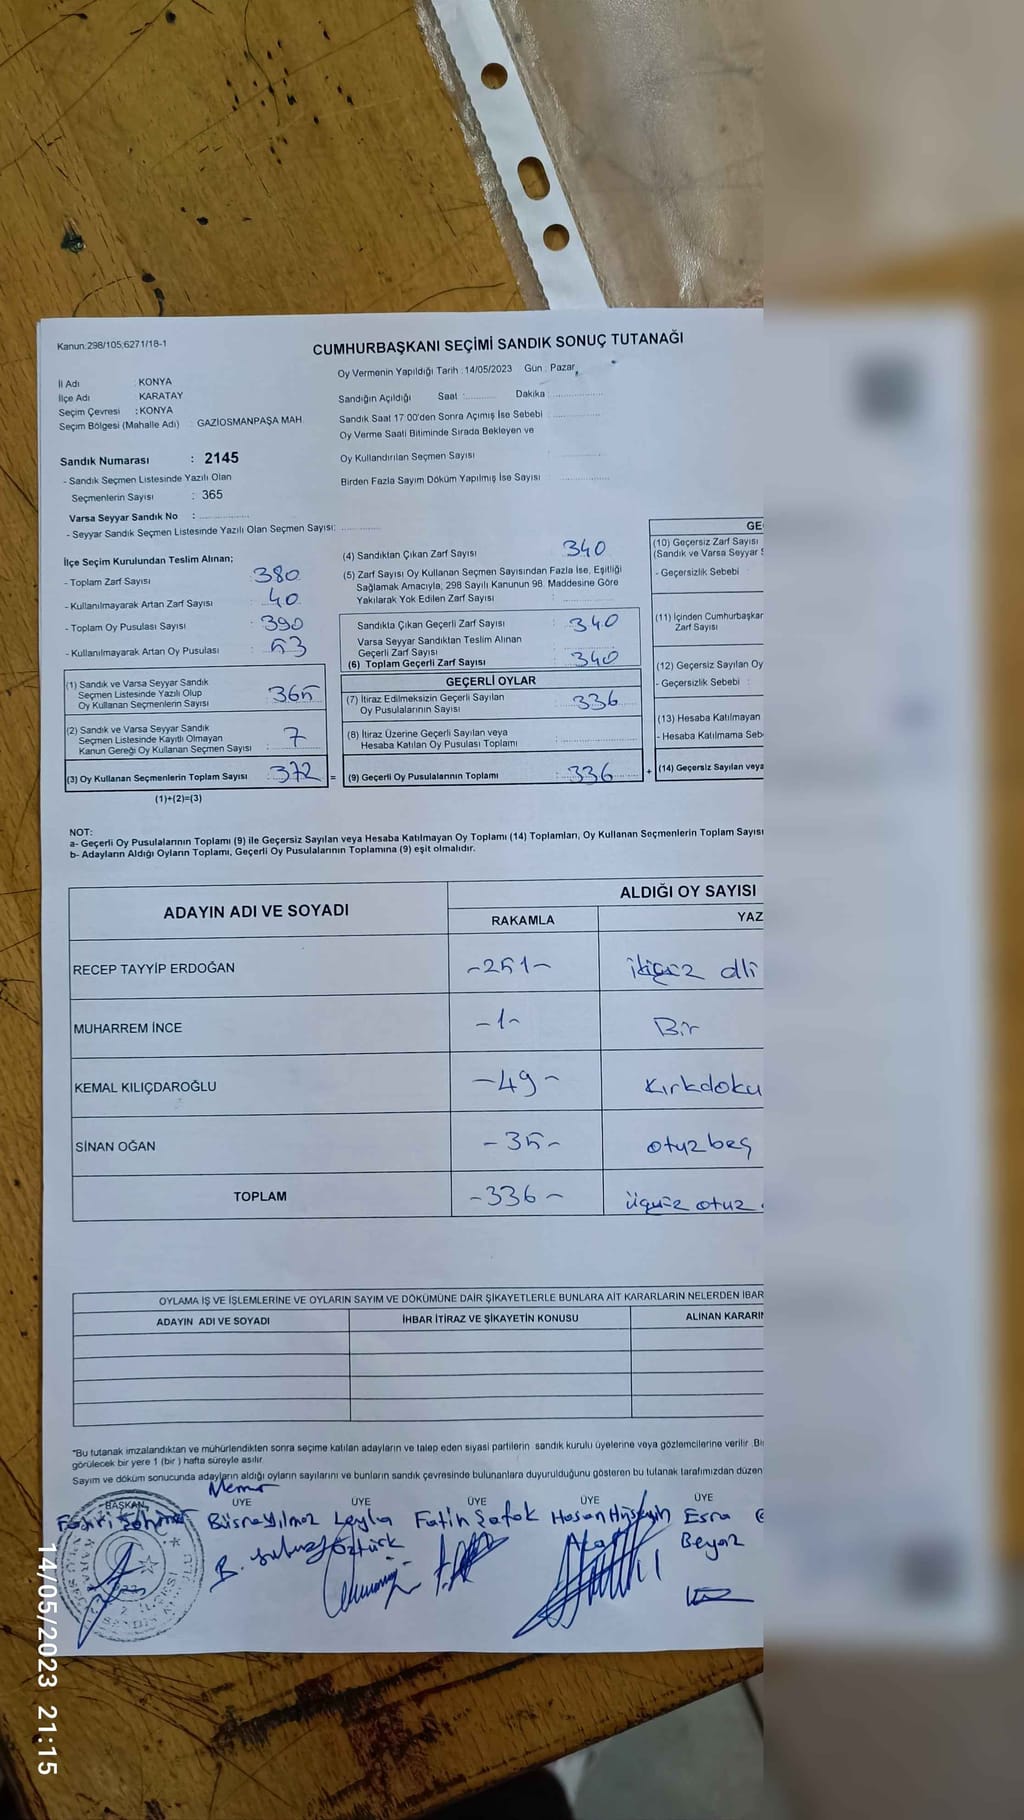 Kanun:298/105;6271/18-1
CUMHURBAŞKANI SEÇİMİ SANDIK SONUÇ TUTANAĞI
Oy Vermenin Yapıldığı Tarih :14/05/2023 Gün : Pazar
İl Adı : KONYA
İlçe Adı : KARATAY
Seçim Çevresi : KONYA
Seçim Bölgesi (Mahalle Adı) : GAZİOSMANPAŞA MAH.
Sandığın Açıldığı Saat :.......... Dakika ..............
Sandık Saat 17:00'den Sonra Açımış İse Sebebi
Oy Verme Saati Bitiminde Sırada Bekleyen ve
Oy Kullandırılan Seçmen Sayısı
Birden Fazla Sayım Döküm Yapılmış İse Sayısı
Sandık Numarası : 2145
- Sandık Seçmen Listesinde Yazılı Olan
Seçmenlerin Sayısı : 365
Varsa Seyyar Sandık No :
- Seyyar Sandık Seçmen Listesinde Yazılı Olan Seçmen Sayısı:
İlçe Seçim Kurulundan Teslim Alınan;
- Toplam Zarf Sayısı : 380
- Kullanılmayarak Artan Zarf Sayısı : 40
- Toplam Oy Pusulası Sayısı : 390
- Kullanılmayarak Artan Oy Pusulası : 53
(1) Sandık ve Varsa Seyyar Sandık
Seçmen Listesinde Yazılı Olup
Oy Kullanan Seçmenlerin Sayısı : 365
(2) Sandık ve Varsa Seyyar Sandık
Seçmen Listesinde Kayıtlı Olmayan
Kanun Gereği Oy Kullanan Seçmen Sayısı : 7
(3) Oy Kullanan Seçmenlerin Toplam Sayısı : 372 =
(1)+(2)=(3)
(4) Sandıktan Çıkan Zarf Sayısı : 340
(5) Zarf Sayısı Oy Kullanan Seçmen Sayısından Fazla İse, Eşitliği
Sağlamak Amacıyla, 298 Sayılı Kanunun 98. Maddesine Göre
Yakılarak Yok Edilen Zarf Sayısı :
Sandıkta Çıkan Geçerli Zarf Sayısı : 340
Varsa Seyyar Sandıktan Teslim Alınan
Geçerli Zarf Sayısı
(6) Toplam Geçerli Zarf Sayısı : 340
GEÇERLİ OYLAR
(7) İtiraz Edilmeksizin Geçerli Sayılan
Oy Pusulalarının Sayısı : 336
(8) İtiraz Üzerine Geçerli Sayılan veya
Hesaba Katılan Oy Pusulası Toplamı :
(9) Geçerli Oy Pusulalarının Toplamı : 336 +
GE
(10) Geçersiz Zarf Sayısı
(Sandık ve Varsa Seyyar S
- Geçersizlik Sebebi
(11) İçinden Cumhurbaşkar
Zarf Sayısı
(12) Geçersiz Sayılan Oy
- Geçersizlik Sebebi :
(13) Hesaba Katılmayan
- Hesaba Katılmama Seb
(14) Geçersiz Sayılan veya
NOT:
a- Geçerli Oy Pusulalarının Toplamı (9) ile Geçersiz Sayılan veya Hesaba Katılmayan Oy Toplamı (14) Toplamları, Oy Kullanan Seçmenlerin Toplam Sayısı
b- Adayların Aldığı Oyların Toplamı, Geçerli Oy Pusulalarının Toplamına (9) eşit olmalıdır.
ADAYIN ADI VE SOYADI
ALDIĞI OY SAYISI
RAKAMLA YAZ
RECEP TAYYİP ERDOĞAN -251- ikiyüz elli
MUHARREM İNCE -1- Bir
KEMAL KILIÇDAROĞLU -49- Kırkdoku
SİNAN OĞAN -35- otuzbeş
TOPLAM -336- üçyüz otuz
OYLAMA İŞ VE İŞLEMLERİNE VE OYLARIN SAYIM VE DÖKÜMÜNE DAİR ŞİKAYETLERLE BUNLARA AİT KARARLARIN NELERDEN İBAR
ADAYIN ADI VE SOYADI İHBAR İTİRAZ VE ŞİKAYETİN KONUSU ALINAN KARARIN
*Bu tutanak imzalandıktan ve mühürlendikten sonra seçime katılan adayların ve talep eden siyasi partilerin sandık kurulu üyelerine veya gözlemcilerine verilir. Bi
görülecek bir yere 1 (bir) hafta süreyle asılır.
Sayım ve döküm sonucunda adayların aldığı oyların sayılarını ve bunların sandık çevresinde bulunanlara duyurulduğunu gösteren bu tutanak tarafımızdan düzen
Memur
BAŞKAN ÜYE ÜYE ÜYE ÜYE ÜYE
Fahri Büşra Yılmaz Leyla Fatih Şafak Hasan Hüseyin Esra
Öztürk Beyaz
14/05/2023 21:15